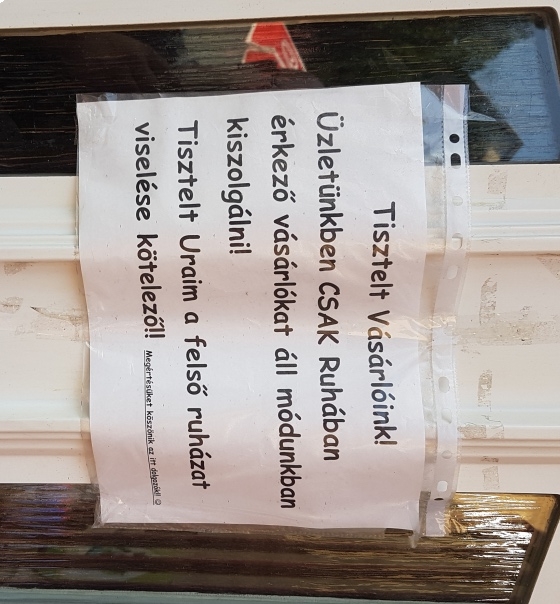 Tisztelt Vásárlóink!
Üzletünkben CSAK Ruhában
érkező vásárlókat áll módunkban
kiszolgálni!
Tisztelt Uraim a felső ruházat
viselése kötelező!! Megértésüket köszönik az itt dolgozók!! ☺